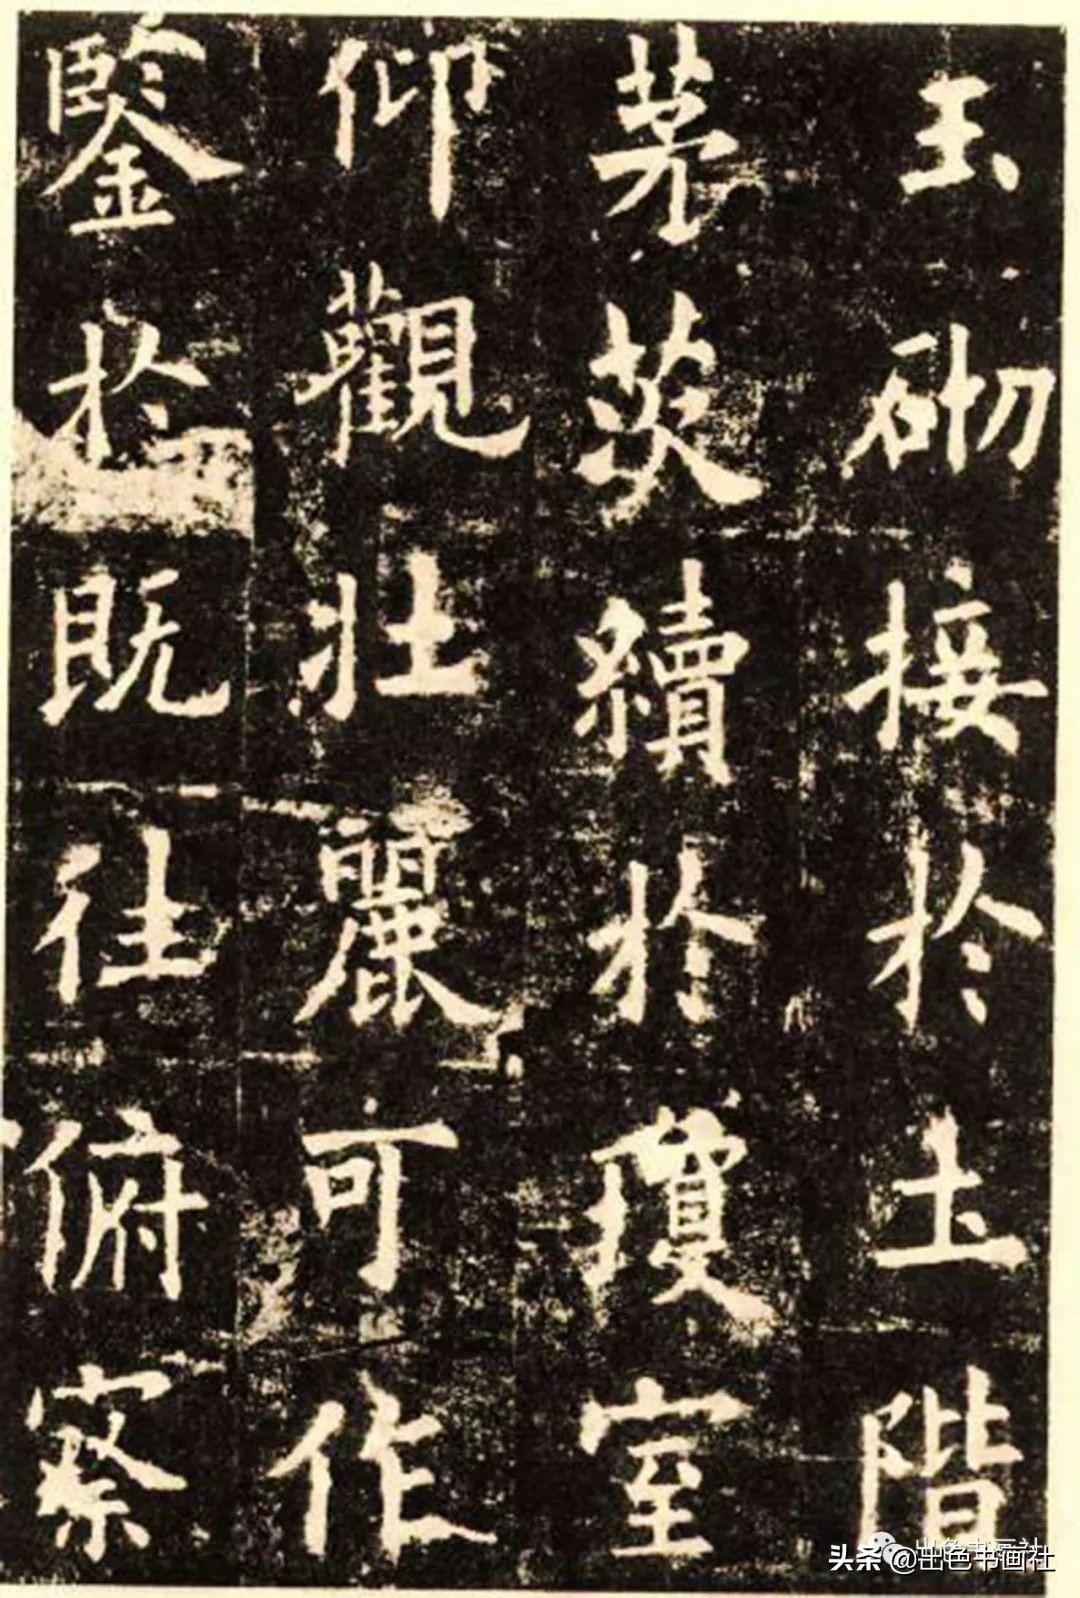 玉砌接於土階
茅茨續於瓊室
仰觀壯麗可作
鑒於既往俯察
头条@出色书画社
出色书画社